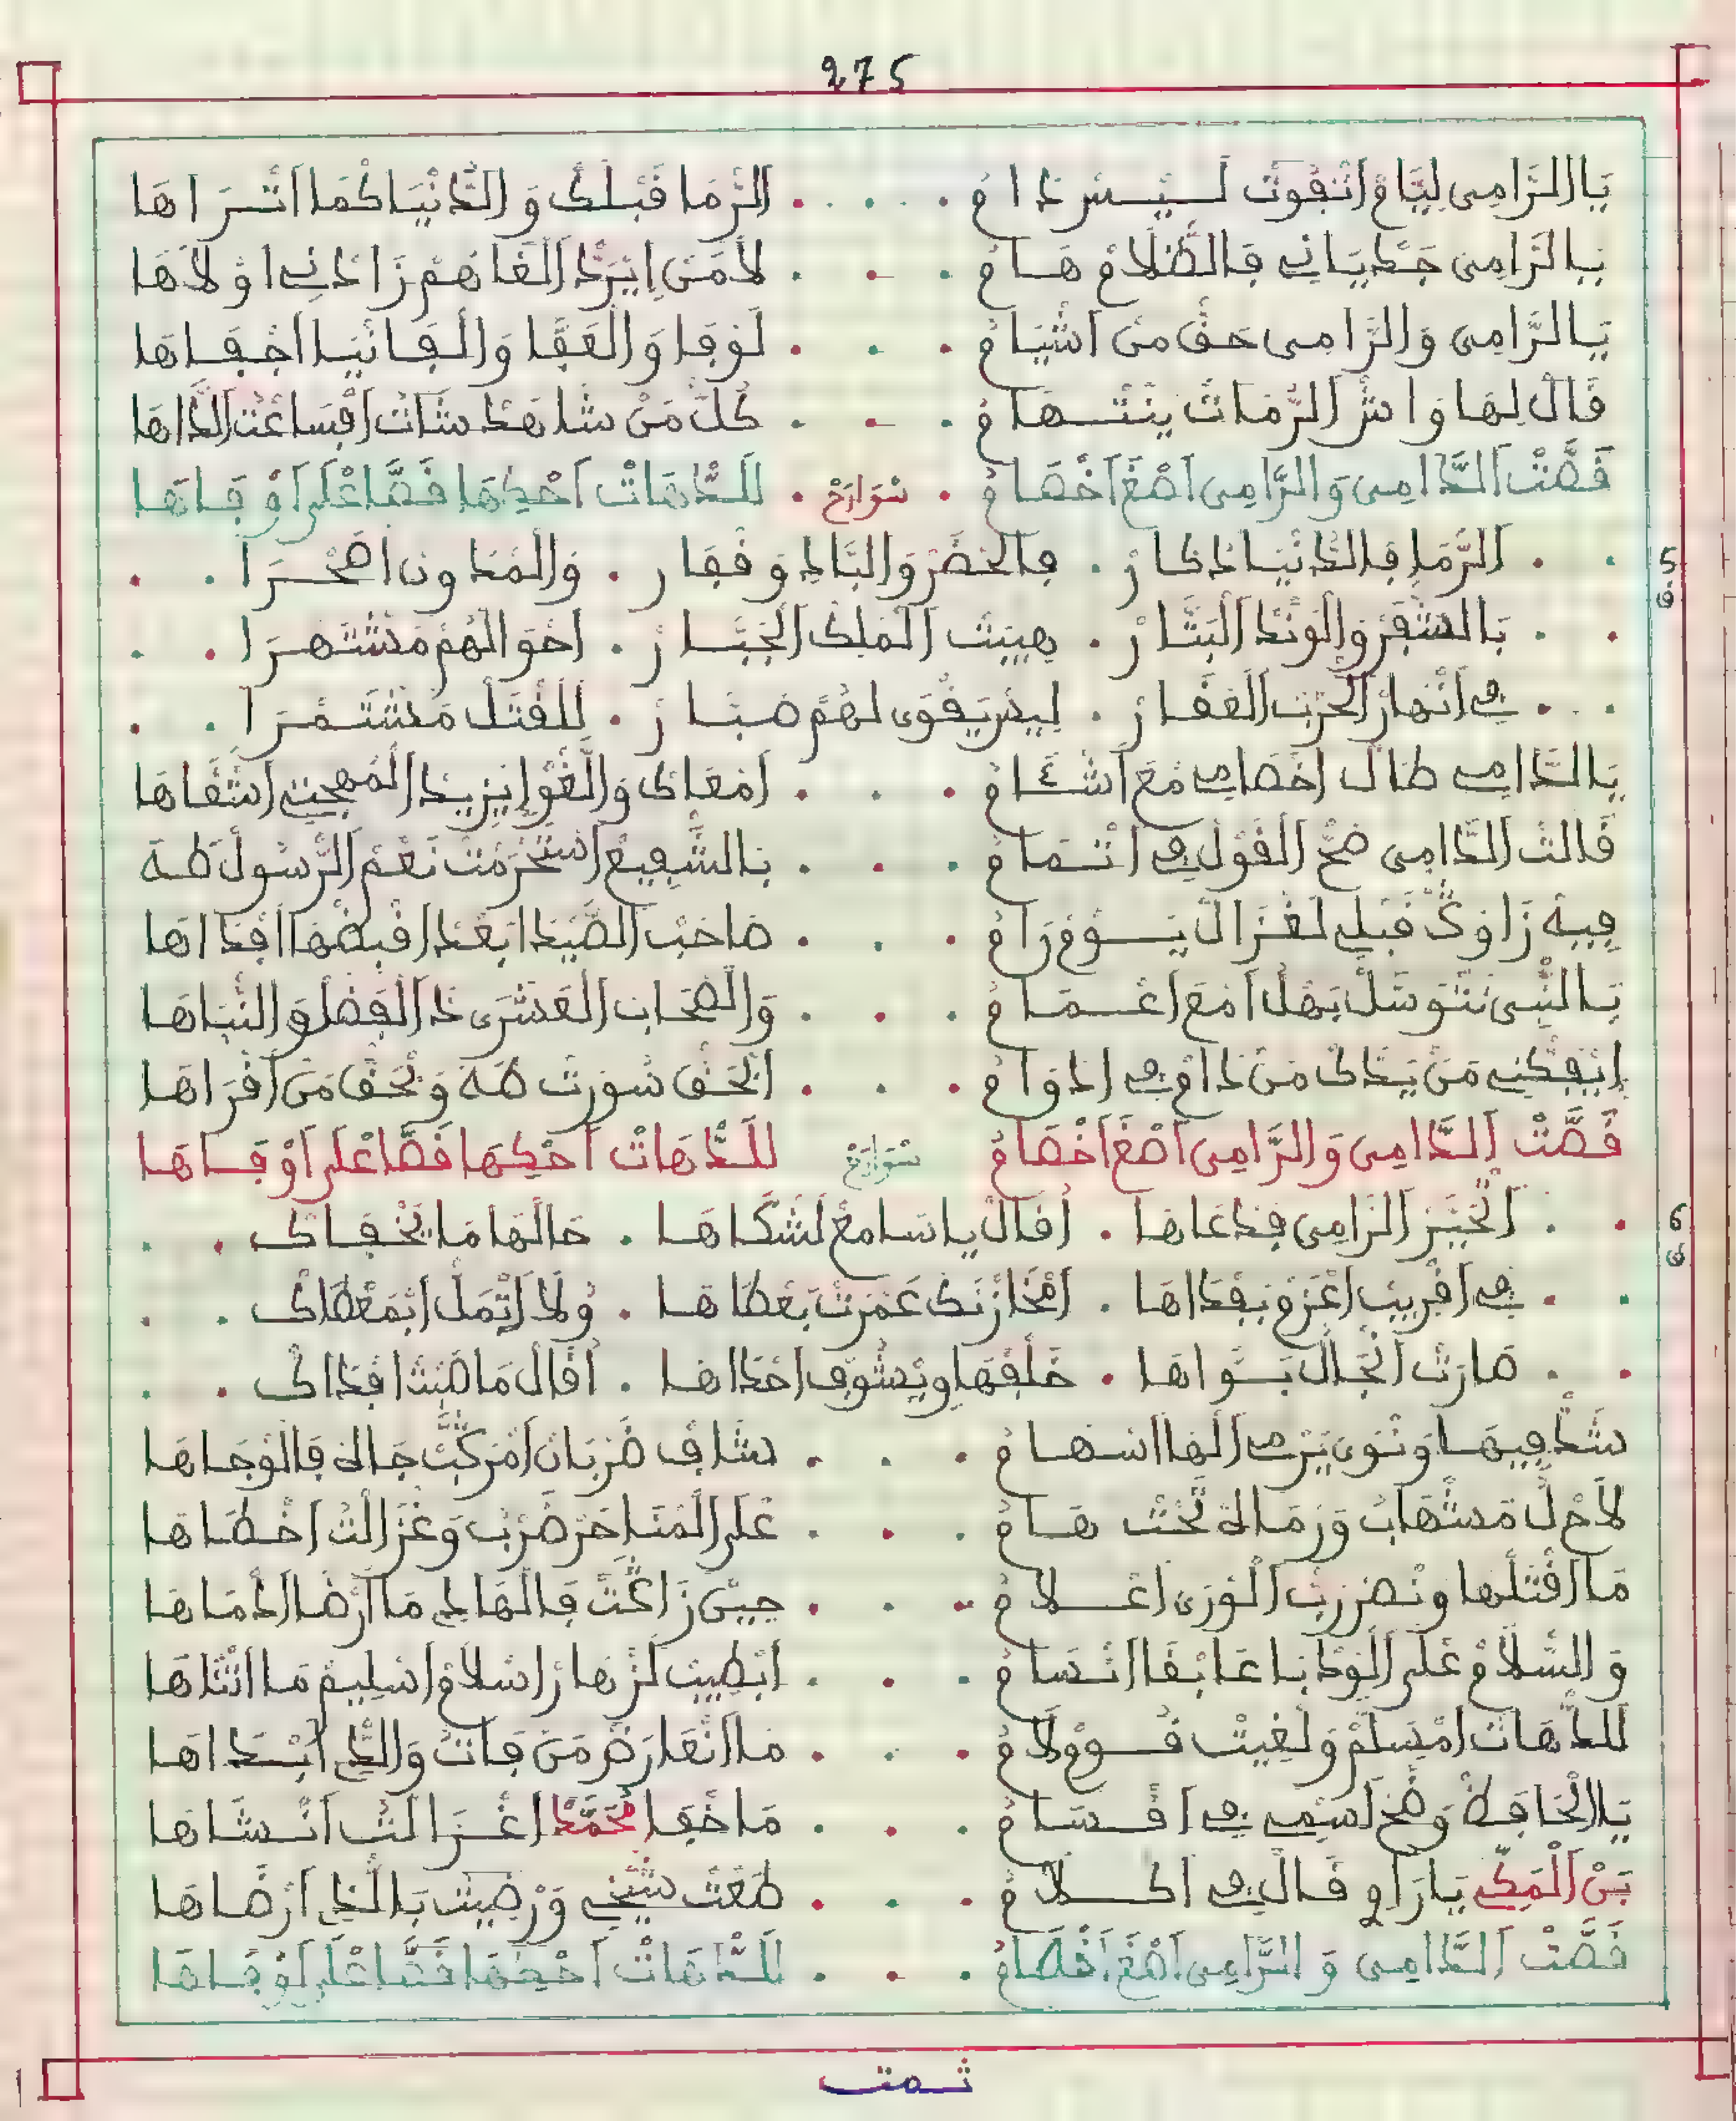 275
يَا الرَّامِي لِيَّامْ اتْفُوتْ لَيْسْ دَامْ . . . الرّْمَا قَبْلَكْ وَ الدَّنْيَا كْمَا اتْرَاهَا
يَا الرَّامِي جَدْيَانِي فَالظّْلَامْ هَامْ . . . لَامَنْ ايْرَدْ الْغَاهُمْ زَادْنِي اوْلَاهَا
يَا الرَّامِي وَالرَّامِي حَقْ مَنْ اشْيَامْ . . . لَوْفَا وَالْعَفَّا وَالْفَانْيَا اجْفَاهَا
قَالْ لِهَا وَاشْ الرّْمَاتْ يَنْتْهَامْ . . . كُلْ مَنْ شَاهَدْ شَاتْ افْسَاعْتْ الدَّاهَا
قَصّْتْ الدَّامِي وَالرَّامِي اصْغَ اخْصَامْ . سْوَارَحْ . للدّْهَاتْ احْكِهَا قَصَّا عْلَى اوْفَاهَا
5
الرّْمَا فَالدَّنْيَا دْكَارْ . فِالْحَضَرْ وَالْبَادِ وَقْفَارْ . وَالْمْدُونْ اصَّحْرَا
بَالشّْفَرْ وَالْوَنْدْ الْبَتَّارْ . هِيبْتْ الْمَلِكْ الْجَبَّارْ . احْوَالْهُمْ مَشْتَهْرَا
فِي انْهَارْ الْحَرْبْ الْغَفَّارْ . لِيسْ يَقْوَى لهُمْ صَبَّارْ . لَلْقْتَلْ مَسْتَمْرَا
يَا الدَّامِي طَالْ اخْصَامِي مْعَ اشْءَامْ . . . امْعَاكْ وَالْغْوَ ايْزِيدْ الْمُهْجْتِي اشْقَاهَا
قَالْتْ الدَّامِي صَحْ الْقَوْلْ فِي اتْمَامْ . . . بَالشّْفِيعْ اسْتَحْرَمْتْ نَعْمْ الرّْسُولْ طَهَ
فِيهْ زَاوْكْ قَبْلِي لَغْزَالْ يَوْمْ رَامْ . . . صَاحْبْ الصَّيْدْ ابْعَدْ اقْبَضْهَا افْدَاهَا
يَا النّْبِي نَتْوَسَّلْ بَهْلْ امْعَ اعْمَامْ . . . وَالصّْحَابْ الْعَشْرَى دَا الْفَضْلْ وَالنّْبَاهَا
ايْفَكْنِي مَنْ يَدَّاكْ مَنْ دَامْ فِي ادْوَامْ . . . ابْحَقْ سُورْتْ طَهَ وَبْحَقْ مَنْ اقْرَاهَا
قَصّْتْ الدَّامِي وَالرَّامِي اصْغَ اخْصَامْ سْوَارَحْ للدّْهَاتْ احْكِهَا قَصَّا عْلَى اوْفَاهَا
6
الْخْبِيرْ الرَّامِي فِدْعَاهَا . اقَالْ يا سَامعْ لَشْكَاهَا . حَالْهَا مَا يَخْفَاكْ
فِي اقْرِيبْ اعْزَمْ بَفْدَاهَا . امْخَازْنَكْ عَمْرَتْ بَعْطَاهَا . وُلَا اتْمَلْ ابْمَعْطَاكْ
صَارَتْ انْجَالْ بَسْوَاهَا . خَلْفْهَا وِيْشُوفْ احْدَاهَا . اقَالْ مَاصَبْتْ افْدَاكْ
شَدّْ فِيهَا وَنْوَى يَرْمِي الْهَا اسْهَامْ . . . شَافْ ضَرْبَانْ امْرَكّْبْ جَالهْ فَالْوْجَاهَا
لَاحْ لْ مَشْهَابْ وَرْمَالهْ تَحْتْ هَامْ . . . عْلَى الْمْنَاحَرْ ضَرْبْ وَغْزَالْتْ اخْطَاهَا
مَا اقْتَلْهَا وَنْصَرْ رَبْ الْوْرَى اعْلَامْ . . . حِينْ زَاغْتْ فَالْهَالِي مَا ارْضَا ادْمَاهَا
وَالسّْلَامْ عْلَى الْوْدْبَا عَابْقَا انْسَامْ . . . ابْطِيبْ لَزْهَارْ اسْلَامْ اسْلِيمْ مَا اتْنَاهَا
للدّْهَاتْ امْسَلّْمْ وَلْغِيتْ قُومْ لَامْ . . . مَا انْعَارَضْ مَنْ فَاتْ وَالدِّي ابْدَاهَا
يَا الْحَافَظْ وَضّْحْ اسْمِي فِي اقْسَامْ . . . مَا خْفَا مُحَمَّدْ اغْزَالْتْ انْشَاهَا
بَنْ الْمَكِّي يَارَاوِي قَالْ فِي اكْلَامْ . . . طَعْتْ شَيْخِي وَرْضِيتْ بَالْدِي ارْضَاهَا
قَصّْتْ الدَّامِي وَ الرَّامِي اصْغَ اخْصَامْ . . . للدّْهَاتْ احْكِهَا قَصَّا عْلَى اوْفَاهَا
تمت